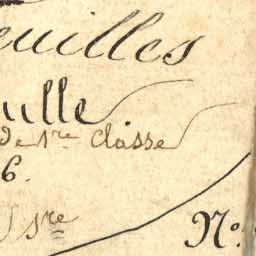 euilles
ulle
de 1re classe
6.
1re No.